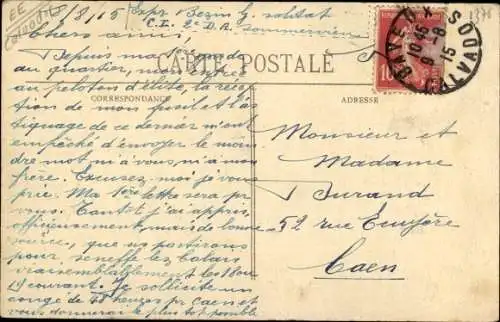 EE
1376
8/8/15 Expr Bezin G. soldat
C.I. 2e D.A. Sommervieu
Chers amis,
CARTE POSTALE
CORRESPONDANCE
ADRESSE
Depuis ma 1ère garde
au quartier, mon entrée
au peloton d'élite, la récep
tion de mon fusil et l'as
tiquage de ce dernier m'ont
empêché d'envoyer le moin
dre mot ni à vous, ni à mon
frère. Excusez moi je vous
prie. Ma 1ère lettre sera pr
vous. Tantôt j'ai appris,
officieusement, mais de bonne
source, que nous partirons
pour
vraisemblablement les 18 ou
19 courant. Je sollicite un
congé de 48 heures pr Caen et
vous donnerai le plus tôt possible
Monsieur et
Madame
Durand
52 rue
Caen
BAYEUX CALVADOS
10 45
9 - 8
15
10